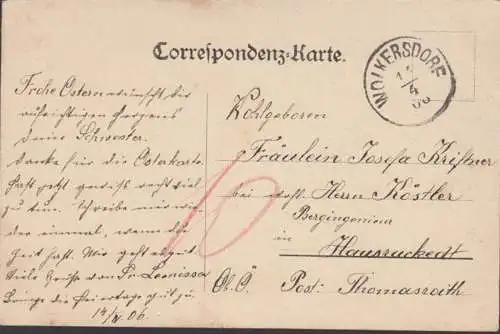 Correspondenz-Karte.
WOLKERSDORF
14
4
06
Frohe Ostern wünscht dir
aufrichtigen Herzens
deine Schwester.
Danke für die Osterkarte.
Hast jetzt gewiss recht viel
zu tun. Schreibe mir wie-
der einmal, wenn du
Zeit hast. Mir geht es gut.
Viele Grüße von Fr. Leonissa
Bringe die Feiertage gut zu
14/IV. 06.
Wohlgeboren
Fräulein Josefa Kristner
bei wohl. Herrn Köstler
Bergingenieur
in
Hausruckedt
Ob. Ö. Post: Thomasroith
10